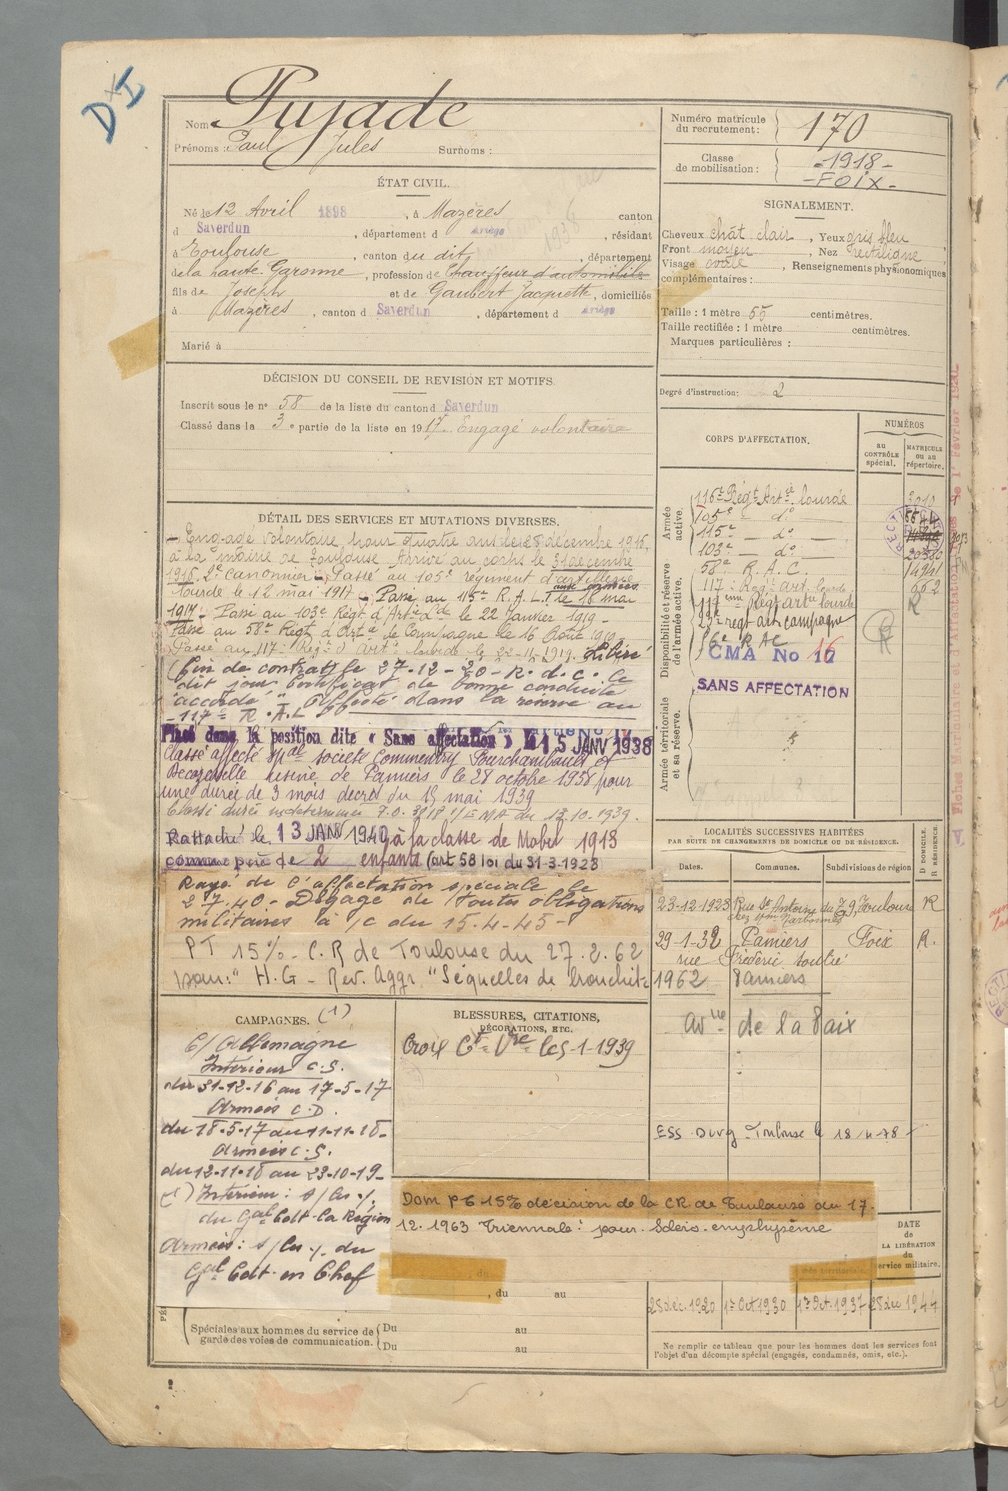 D I
Nom Pujade
Prénoms : Paul Jules Surnoms :
Numéro matricule du recrutement : 170
Classe de mobilisation : -1918-
-FOIX-
ÉTAT CIVIL.
Né le 12 Avril 1898, à Mazères canton
d Saverdun, département d Ariège, résidant
à Toulouse, canton du dit, département
de la haute Garonne, profession de Chauffeur d'automobile
fils de Joseph et de Gaubert Jacquette, domiciliés
à Mazères, canton d Saverdun, département d Ariège
Marié à
SIGNALEMENT.
Cheveux chât clair, Yeux gris bleu
Front moyen, Nez rectiligne
Visage ovale, Renseignements physionomiques
complémentaires :
Taille : 1 mètre 65 centimètres.
Taille rectifiée : 1 mètre centimètres.
Marques particulières :
Degré d'instruction : 2
DÉCISION DU CONSEIL DE REVISION ET MOTIFS.
Inscrit sous le n° 58 de la liste du canton d Saverdun
Classé dans la 3e partie de la liste en 1917. Engagé volontaire
DÉTAIL DES SERVICES ET MUTATIONS DIVERSES.
Engagé volontaire pour quatre ans le 28 décembre 1916,
à la mairie de Toulouse. Arrivé au corps le 31 décembre
1916. 2e canonnier. Passé au 105e régiment d'artillerie
lourde le 12 mai 1917 - Passé au 115e R.A.L. aux armées le 18 mai
1917 - Passé au 103e Régt d'Artie Lde le 22 Janvier 1919 -
Passé au 58e Régt d'Artie de Campagne le 16 Août 1919
Passé au 117e Régt d'Artie lourde le 22-11-1919. Libéré
(fin de contrat) le 27-12-20 - R. d. c. le
dit jour. Certificat de bonne conduite
"accordé" - Affecté dans la réserve au
117e R.A.L
Placé dans la position dite « Sans affectation » le 15 JANV 1938
Classé affecté spal société Commentry Fourchambault et
Decazeville usine de Pamiers le 28 octobre 1938 pour
une durée de 3 mois décret du 15 mai 1939
Classé durée indéterminée
Rattaché le 13 JANV 1940 à la classe de Mobon 1913
comme père de 2 enfants (art 58 loi du 31-3-1928
Rayé de l'affectation spéciale le
2.7.40 - Dégagé de toutes obligations
militaires à /c du 15.4.45 -
PT 15% - C.R de Toulouse du 27.2.62
pour : " H.G - Rev. Aggr "Séquelles de bronchite
CORPS D'AFFECTATION.
NUMÉROS
au CONTRÔLE spécial.
MATRICULE ou au répertoire.
Armée active.
116e Régt Artie lourde
105e - do -
115e - do -
103e - do -
58e R. A. C.
Disponibilité et réserve de l'armée active.
117e Régt art. lourde 962
117ème Régt artie lourde R
23e régt art campagne
16e R A C
CMA No 16
SANS AFFECTATION
Armée territoriale et sa réserve.
LOCALITÉS SUCCESSIVES HABITÉES
PAR SUITE DE CHANGEMENTS DE DOMICILE OU DE RÉSIDENCE.
D DOMICILE. R RÉSIDENCE.
Dates. Communes. Subdivisions de région
23-12-1923 Rue St Antoine du T 9, Toulouse R
29-1-32 Pamiers Foix R.
rue Frédéric Soulié
1962 Pamiers
Avue de la Paix
ESS Toulouse le
CAMPAGNES. (1)
C/ Allemagne
Intérieur C.S.
du 31-12-16 au 17-5-17
Armées C.D.
du 18-5-17 au 11-11-18-
Armées C.S.
du 12-11-18 au 23-10-19-
(1) Intérieur :
du Gal Cdt la Région
Armées : du
Gal Cdt en Chef
BLESSURES, CITATIONS,
DÉCORATIONS, ETC.
Croix Ct Vre le 5-1-1939
Dom PT 15% décision de la CR de Toulouse du 17.
12.1963 Triennale : pour Scléro-emphysème
, du au
DATE
de
LA LIBÉRATION
du
service militaire.
28 déc. 1920 1er Oct 1930 1er Oct. 1937 28 déc 1944
Spéciales aux hommes du service de garde des voies de communication. Du au
Du au
Ne remplir ce tableau que pour les hommes dont les services font
l'objet d'un décompte spécial (engagés, condamnés, omis, etc.).